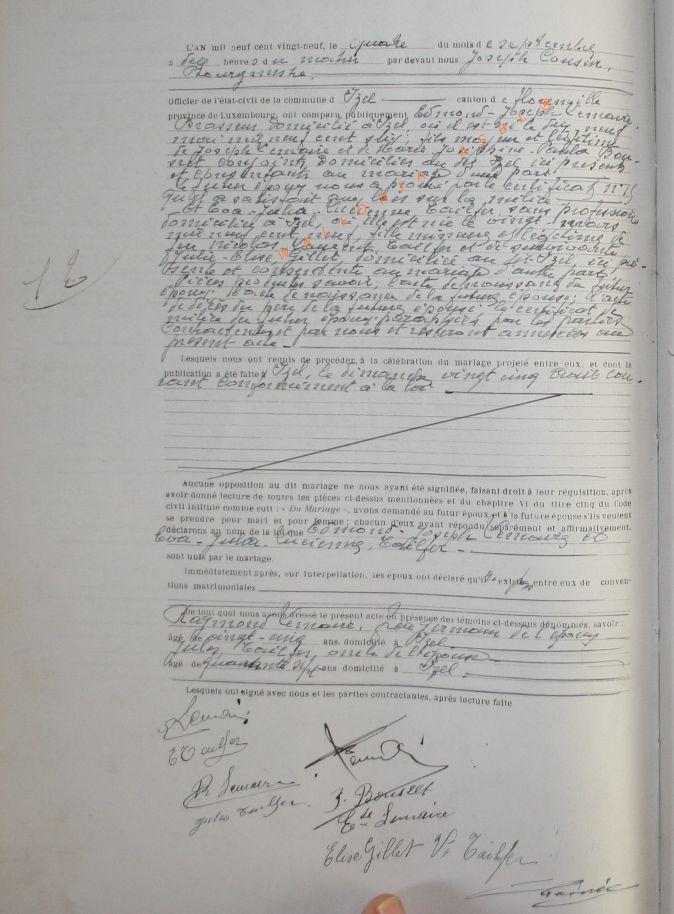 L'AN mil neuf cent vingt-neuf, le quatre du mois de septembre
à dix heures du matin par devant nous Joseph Cousin,
Bourgmestre,
Officier de l'état-civil de la commune d'Izel canton de Florenville
province de Luxembourg, ont comparu publiquement Edmond-Joseph Lemaire,
Brasseur domicilié à Izel, où il est né le
mai mil neuf cent six, fils majeur et légitime
de Joseph Lemaire et de Marie Joséphine
conjoints domiciliés au dit Izel, ici présents
et consentants au mariage d'une part
le futur époux nous a prouvé par le certificat n° 15
qu'il a satisfait aux lois sur la milice
et Eva-Julia-Lucienne Tailfer, sans profession
domiciliée à Izel, où elle est née le onze mars
mil neuf cent neuf, fille mineure et légitime de
feu Nicolas Tailfer et de
Julie-Elise Gillet, domiciliée au dit Izel, ici pré-
sente et consentante au mariage d'autre part;
Pièces produites savoir, l'acte de naissance du futur
époux; l'acte de naissance de la future épouse; l'acte
de décès du père de la future épouse; le certificat de
milice du futur époux; paraphées par les parties
contractantes et par nous et resteront annexées au
présent acte.-
12
Lesquels nous ont requis de procéder à la célébration du mariage projeté entre eux, et dont la
publication a été faite à Izel, le dimanche vingt cinq août cou-
rant conformément à la loi
Aucune opposition au dit mariage ne nous ayant été signifiée, faisant droit à leur réquisition, après
avoir donné lecture de toutes les pièces ci-dessus mentionnées et du chapitre VI du titre cinq du Code
civil intitulé comme suit : « Du Mariage », avons demandé au futur époux et à la future épouse s'ils veulent
se prendre pour mari et pour femme ; chacun d'eux ayant répondu séparément et affirmativement,
déclarons au nom de la loi que Edmond-Joseph Lemaire et
Eva-Julia-Lucienne, Tailfer.-
sont unis par le mariage.
Immédiatement après, sur interpellation, les époux ont déclaré qu'il n'existe pas entre eux de conven-
tions matrimoniales
De tout quoi nous avons dressé le présent acte en présence des témoins ci-dessus dénommés, savoir :
Raymond Lemaire, frère germain de l'époux
âgé de vingt-cinq ans, domicilié à Izel.-
Jules Tailfer, oncle de l'épouse.-
âgé de quarante sept ans domicilié à Izel.
Lesquels ont signé avec nous et les parties contractantes, après lecture faite
Lemaire
E Tailfer
R Lemaire
Jules Tailfer
Lemaire
Elise Gillet Ve Tailfer